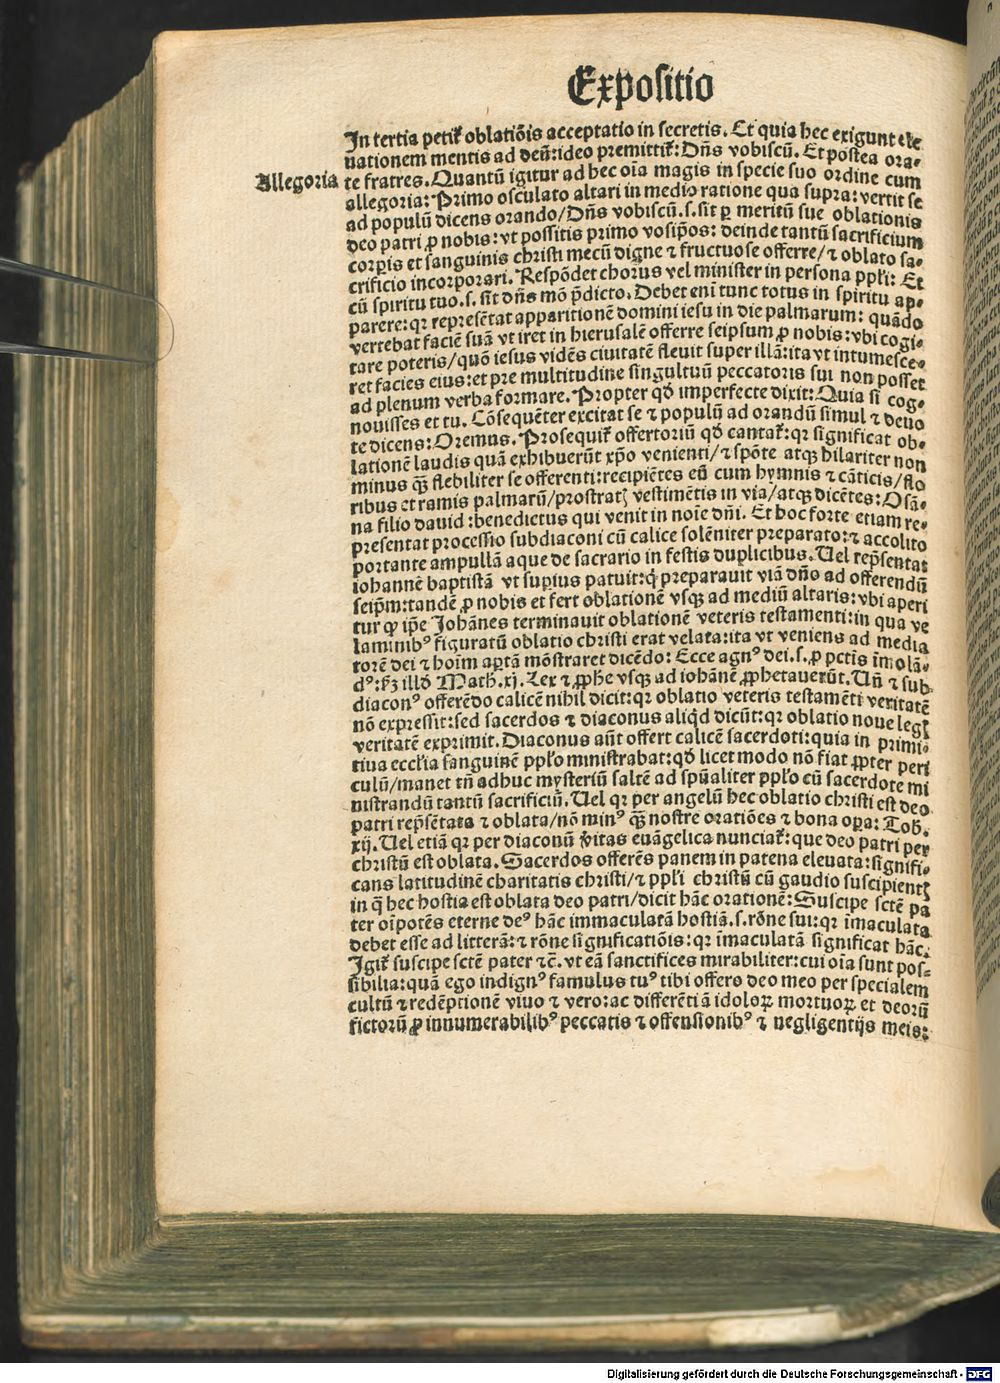 Expositio
In tertia petit̃ oblatiõis acceptatio in secretis. Et quia hec exigunt ele
uationem mentis ad deũ: ideo premittit̃: Dñs vobiscũ. Et postea ora⸗
Allegoria te fratres. Quantũ igitur ad hec oĩa magis in specie suo ordine cum
allegoria: Primo osculato altari in medio ratione qua supra: vertit se
ad populũ dicens orando/ Dñs vobiscũ .s. sit ꝑ meritũ sue oblationis
deo patri ꝓ nobis: vt possitis primo vosip̃os: deinde tantũ sacrificium
corꝑis et sanguinis christi mecũ digne ⁊ fructuose offerre/ ⁊ oblato sa⸗
crificio incorporari. Respõdet chorus vel minister in persona ppl̃i: Et
cũ spiritu tuo .s. sit dñs mõ p̃dicto. Debet enĩ tunc totus in spiritu ap⸗
parere: qꝛ represẽtat apparitionẽ domini iesu in die palmarum: quãdo
vertebat faciẽ suã vt iret in hierusalẽ offerre seipsum ꝓ nobis: vbi cogi⸗
tare poteris/ quõ iesus vidẽs ciuitatẽ fleuit super illã: ita vt intumesce⸗
ret facies eius: et pre multitudine singultuũ peccatoris sui non posset
ad plenum verba formare. Propter qd̃ imperfecte dixit: Quia si cog⸗
nouisses et tu. Cõsequẽter excitat se ⁊ populũ ad orandũ simul ⁊ deuo
te dicens: Oremus. Prosequit̃ offertoriũ qd̃ cantat̃: qꝛ significat ob⸗
lationẽ laudis quã exhibuerũt xp̃o venienti/ ⁊ spõte atqꝫ hilariter non
minus qꝫ̃ flebiliter se offerenti: recipiẽtes eũ cum hymnis ⁊ cãticis/ flo
ribus et ramis palmarũ/ prostratꝭ vestimẽtis in via/ atqꝫ dicẽtes: Osã⸗
na filio dauid: benedictus qui venit in noĩe dñi. Et hoc forte etiam re⸗
presentat processio subdiaconi cũ calice solẽniter preparato: ⁊ accolito
portante ampullã aque de sacrario in festis duplicibus. Uel rep̃sentat
iohannẽ baptistã vt supius patuit: q̃ preparauit viã dño ad offerendũ
seip̃m: tandẽ ꝓ nobis et fert oblationẽ vsqꝫ ad mediũ altaris: vbi aperi
tur ꝙ ip̃e Johãnes terminauit oblationẽ veteris testamenti: in qua ve
laminibꝰ figuratũ oblatio christi erat velata: ita vt veniens ad media
torẽ dei ⁊ hoĩm aꝑtã mõstraret dicẽdo: Ecce agnꝰ dei .s. ꝓ pctĩs ĩmolã⸗
dꝰ: ẜm illð Math. xj. Lex ⁊ ꝓphe vsqꝫ ad iohãnẽ ꝓphetauerũt. Uñ ⁊ sub⸗
diaconꝰ offerẽdo calicẽ nihil dicit: qꝛ oblatio veteris testamẽti veritatẽ
nõ expressit: sed sacerdos ⁊ diaconus aliqd̃ dicũt: qꝛ oblatio noue legꝭ
veritatẽ exprimit. Diaconus aũt offert calicẽ sacerdoti: quia in primi⸗
tiua eccl̃ia sanguinẽ ppl̃o ministrabat: qd̃ licet modo nõ fiat ꝓpter peri
culũ/ manet tñ adhuc mysteriũ saltẽ ad spũaliter ppl̃o cũ sacerdote mi
nistrandũ tantũ sacrificiũ. Uel qꝛ per angelũ hec oblatio christi est deo
patri rep̃sẽtata ⁊ oblata/ nõ minꝰ qꝫ̃ nostre oratiões ⁊ bona oꝑa: Tob.
xij. Uel etiã qꝛ per diaconũ v̓itas euãgelica nunciat̃: que deo patri per
christũ est oblata. Sacerdos offerẽs panem in patena eleuata: signifi⸗
cans latitudinẽ charitatis christi/ ⁊ ppl̃i christũ cũ gaudio suscipientꝭ
in q̃ hec hostia est oblata deo patri/ dicit hãc orationẽ: Suscipe sctẽ pa
ter oĩpotẽs eterne deꝰ hãc immaculatã hostiã .s. rõne sui: qꝛ ĩmaculata
debet esse ad litterã: ⁊ rõne significatiõis: qꝛ ĩmaculatã significat hãc.
Igit̃ suscipe sctẽ pater ⁊c̃. vt eã sanctifices mirabiliter: cui oĩa sunt pos⸗
sibilia: quã ego indignꝰ famulus tuꝰ tibi offero deo meo per specialem
cultũ ⁊ redẽptionẽ viuo ⁊ vero: ac differẽtiã idoloꝝ mortuoꝝ et deorũ
fictorũ ꝓ innumerabilibꝰ peccatis ⁊ offensionibꝰ ⁊ negligentijs meis:
Digitalisierung gefördert durch die Deutsche Forschungsgemeinschaft - DFG